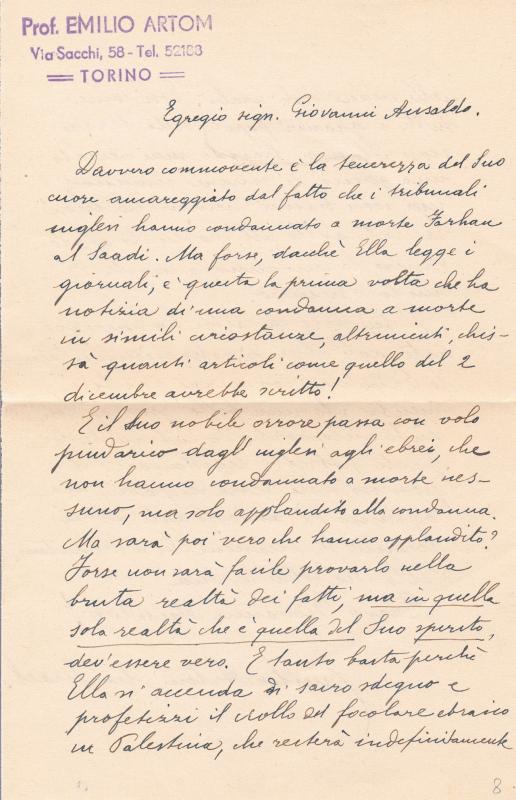 Prof. EMILIO ARTOM
Via Sacchi, 58 - Tel. 52188
TORINO
Egregio sign. Giovanni Ansaldo.
Davvero commovente è la tenerezza del Suo
cuore amareggiato dal fatto che i tribunali
inglesi hanno condannato a morte Farhan
al Saadi. Ma forse, dacchè Ella legge i
giornali, è questa la prima volta che ha
notizia di una condanna a morte
in simili circostanze, altrimenti, chis-
sà quanti articoli come quello del 2
dicembre avrebbe scritto!
E il Suo nobile orrore passa con volo
pindarico dagl' inglesi agli ebrei, che
non hanno condannato a morte nes-
suno, ma solo applaudito alla condanna.
Ma sarà poi vero che hanno applaudito?
Forse non sarà facile provarlo nella
bruta realtà dei fatti, ma in quella
sola realtà che è quella del Suo spirito,
dev'essere vero. E tanto basta perchè
Ella si accenda di sacro sdegno e
profetizzi il crollo del focolare ebraico
in Palestina, che resterà indefinitamente
8